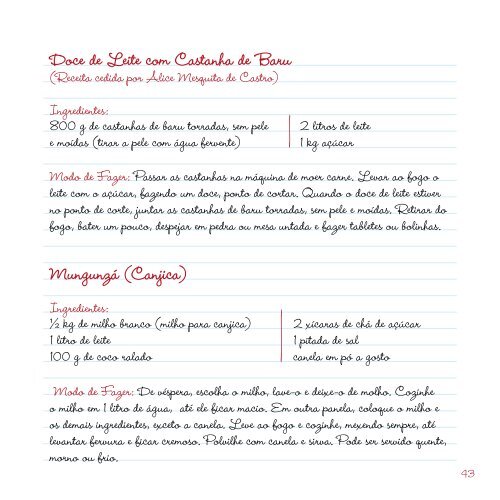 Doce de Leite com Castanha de Baru
(Receita cedida por Alice Mesquita de Castro)
Ingredientes:
800 g de castanhas de baru torradas, sem pele
e moídas (tirar a pele com água fervente)
2 litros de leite
1 kg açúcar
Modo de Fazer: Passar as castanhas na máquina de moer carne. Levar ao fogo o
leite com o açúcar, fazendo um doce, ponto de cortar. Quando o doce de leite estiver
no ponto de corte, juntar as castanhas de baru torradas, sem pele e moídas. Retirar do
fogo, bater um pouco, despejar em pedra ou mesa untada e fazer tabletes ou bolinhas.
Mungunzá (Canjica)
Ingredientes:
½ kg de milho branco (milho para canjica)
1 litro de leite
100 g de coco ralado
2 xícaras de chá de açúcar
1 pitada de sal
canela em pó a gosto
Modo de Fazer: De véspera, escolha o milho, lave-o e deixe-o de molho. Cozinhe
o milho em 1 litro de água, até ele ficar macio. Em outra panela, coloque o milho e
os demais ingredientes, exceto a canela. Leve ao fogo e cozinhe, mexendo sempre, até
levantar fervura e ficar cremoso. Polvilhe com canela e sirva. Pode ser servido quente,
morno ou frio.
43